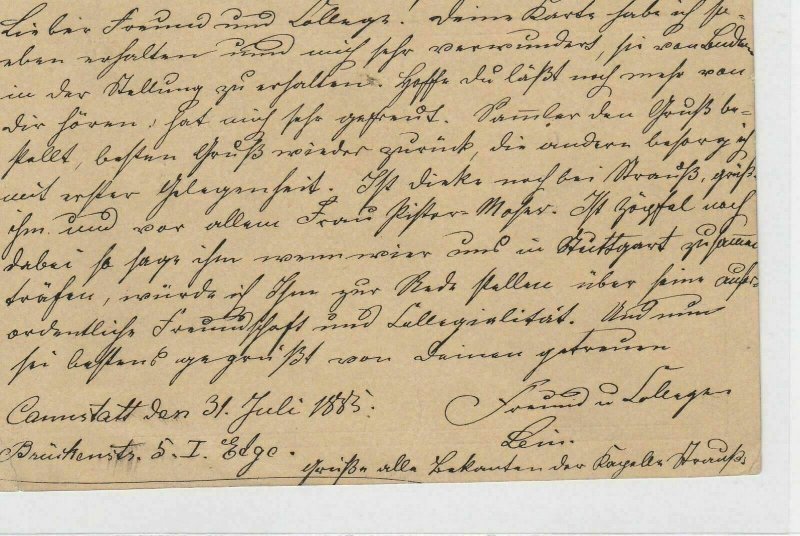 Lieber Freund und College! Deine Karte habe ich so-
eben erhalten und mich sehr verwundert, sie von
in der Stellung zu erhalten. Hoffe Du läßt noch mehr von
Dir hören; hat mich sehr gefreut. Sammler den Gruß be-
stellt, besten Gruß wieder zurück, die andern besorg ich
mit erster Gelegenheit. Ist Dieke noch bei Strauß, grüß-
ihm und vor allem Frau Pister-Moser. Ist Zöpfel noch
dabei so sage ihm wenn wier uns in Stuttgart zusammen
träfen, würde ich Ihn zur Rede stellen über seine außer-
ordentliche Freundschaft und Collegialität. Und nun
sei bestens gegrüßt von Deinem getreuen
Cannstatt den 31. Juli 1885. Freund u College
Brückenstr. 5. I. Etge. Lein.
Grüße alle Bekanten der Kapelle Strauß